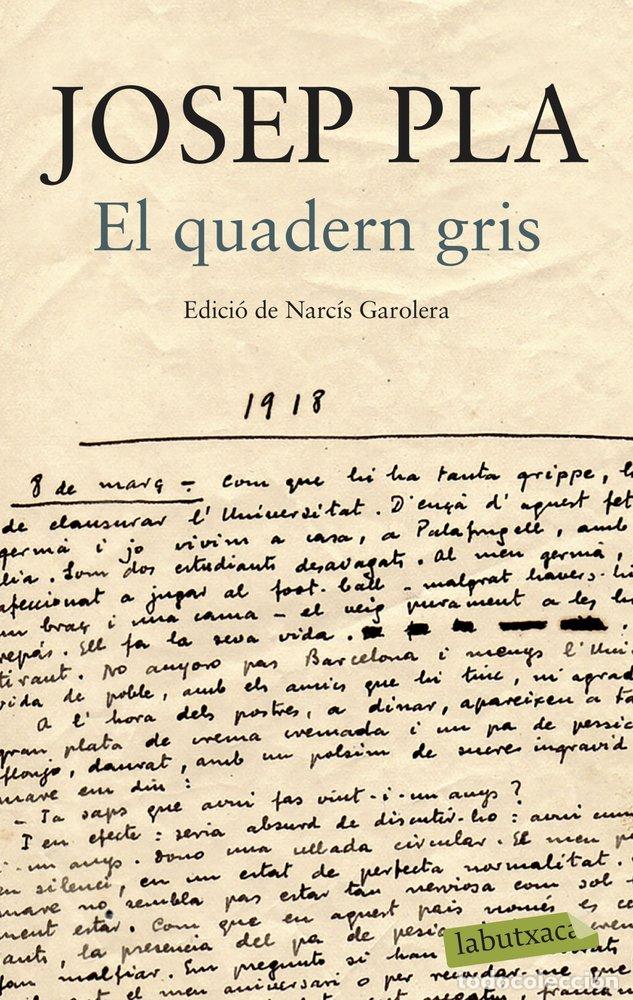 JOSEP PLA
El quadern gris
Edició de Narcís Garolera
1918
8 de març - Com que hi ha tanta grippe, h
de clausurar l'Universitat. D'ençà d'aquest fet
germà i jo vivim a casa, a Palafrugell, amb
lia. Som dos estudiants desvagats. Al meu germà,
afeccionat a jugar al foot-ball - malgrat havers-hi
un braç i una cama - el veig purament a les h
repàs. Ell fa la seva vida.
tirant. No anyoro pas Barcelona i menys l'Uni
vida de poble, amb els amics que hi tinc, m'agrad
A l'hora dels postres, a dinar, apareixen a ta
gran plata de crema cremada i un pa de pessic
flonjo, daurat, amb un polsim de sucres ingravid
mare em diu:
- Ja saps que avui fas vint-i-un anys?
I en efecte: seria absurd de discutir-ho: avui
i-un anys. Dono una ullada circular. El meu p
en silenci, en un estat de perfecta normalitat.
mare no sembla pas estar tan nerviosa com sol
ment estar. Com que en aquest país només es ce
ants, la presència del pa de pessic
fan malfiar. Em pregunto si han
el meu aniversari o per recordar-me que
labutxaca
todocoleccion